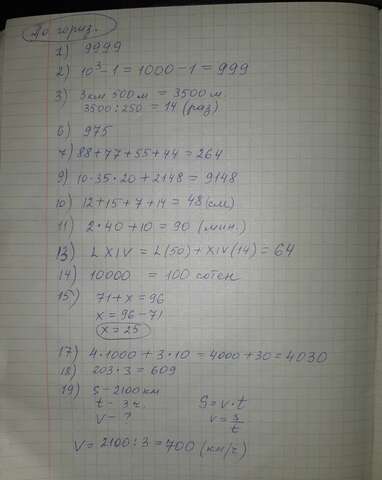 По гориз.
1) 9999
2) 10³-1 = 1000-1 = 999
3) 3км 500м = 3500м
3500:250 = 14 (раз)
6) 975
7) 88+77+55+44 = 264
9) 10·35·20 + 2148 = 9148
10) 12+15+7+14 = 48 (см)
11) 2·40+10 = 90 (мин.)
13) LXIV = L(50) + XIV(14) = 64
14) 10000 = 100 сотен
15) 71+x = 96
x = 96-71
x = 25
17) 4·1000 + 3·10 = 4000+30 = 4030
18) 203·3 = 609
19) S - 2100 км
t - 3 ч. S = v·t
v - ? v = S/t
v = 2100:3 = 700 (км/ч)